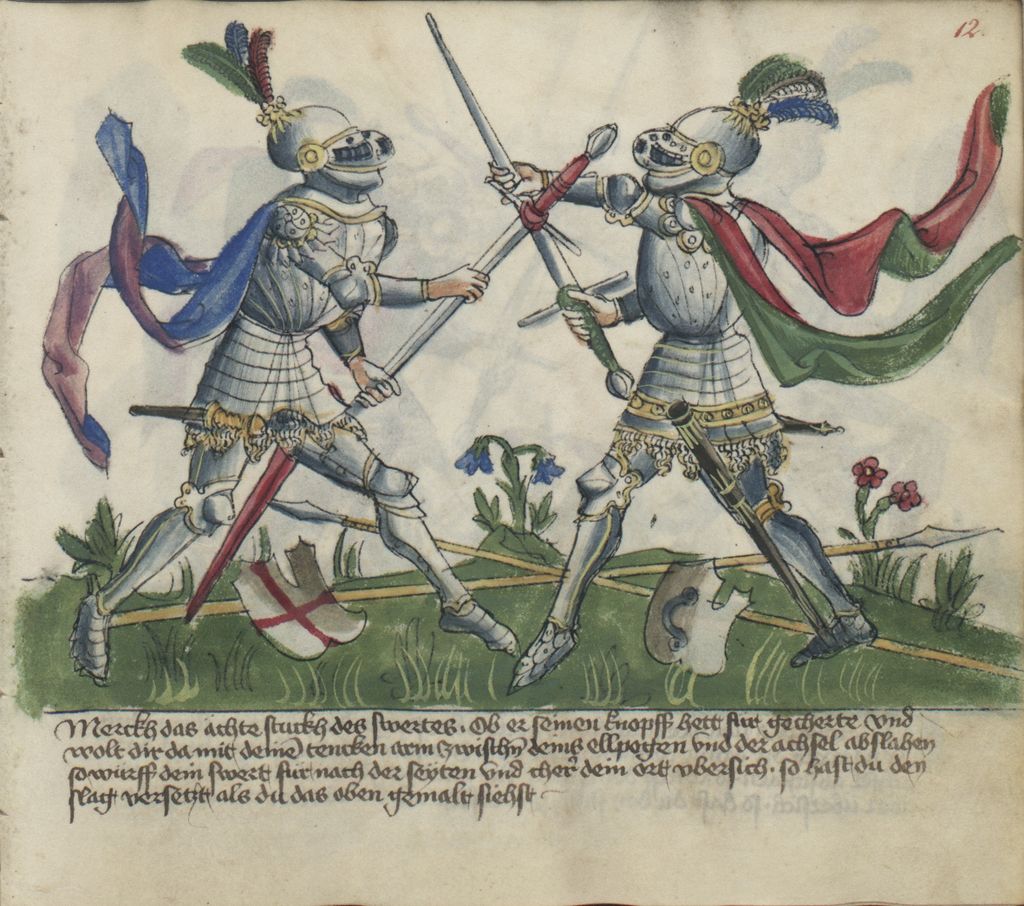 12.
Merckh das achte stuckh des swertes. Ob er seinen knopff hett fur gecherte vnd
wolt dir da mit deinē tencken arm zwischn̄ deins ellpogen vnd der achsel abslahen
so würff dein swert fur nach der seyten vnd cher̄ dein ort vbersich. so hast du den
slag versetzt als du das oben gemalt siehst